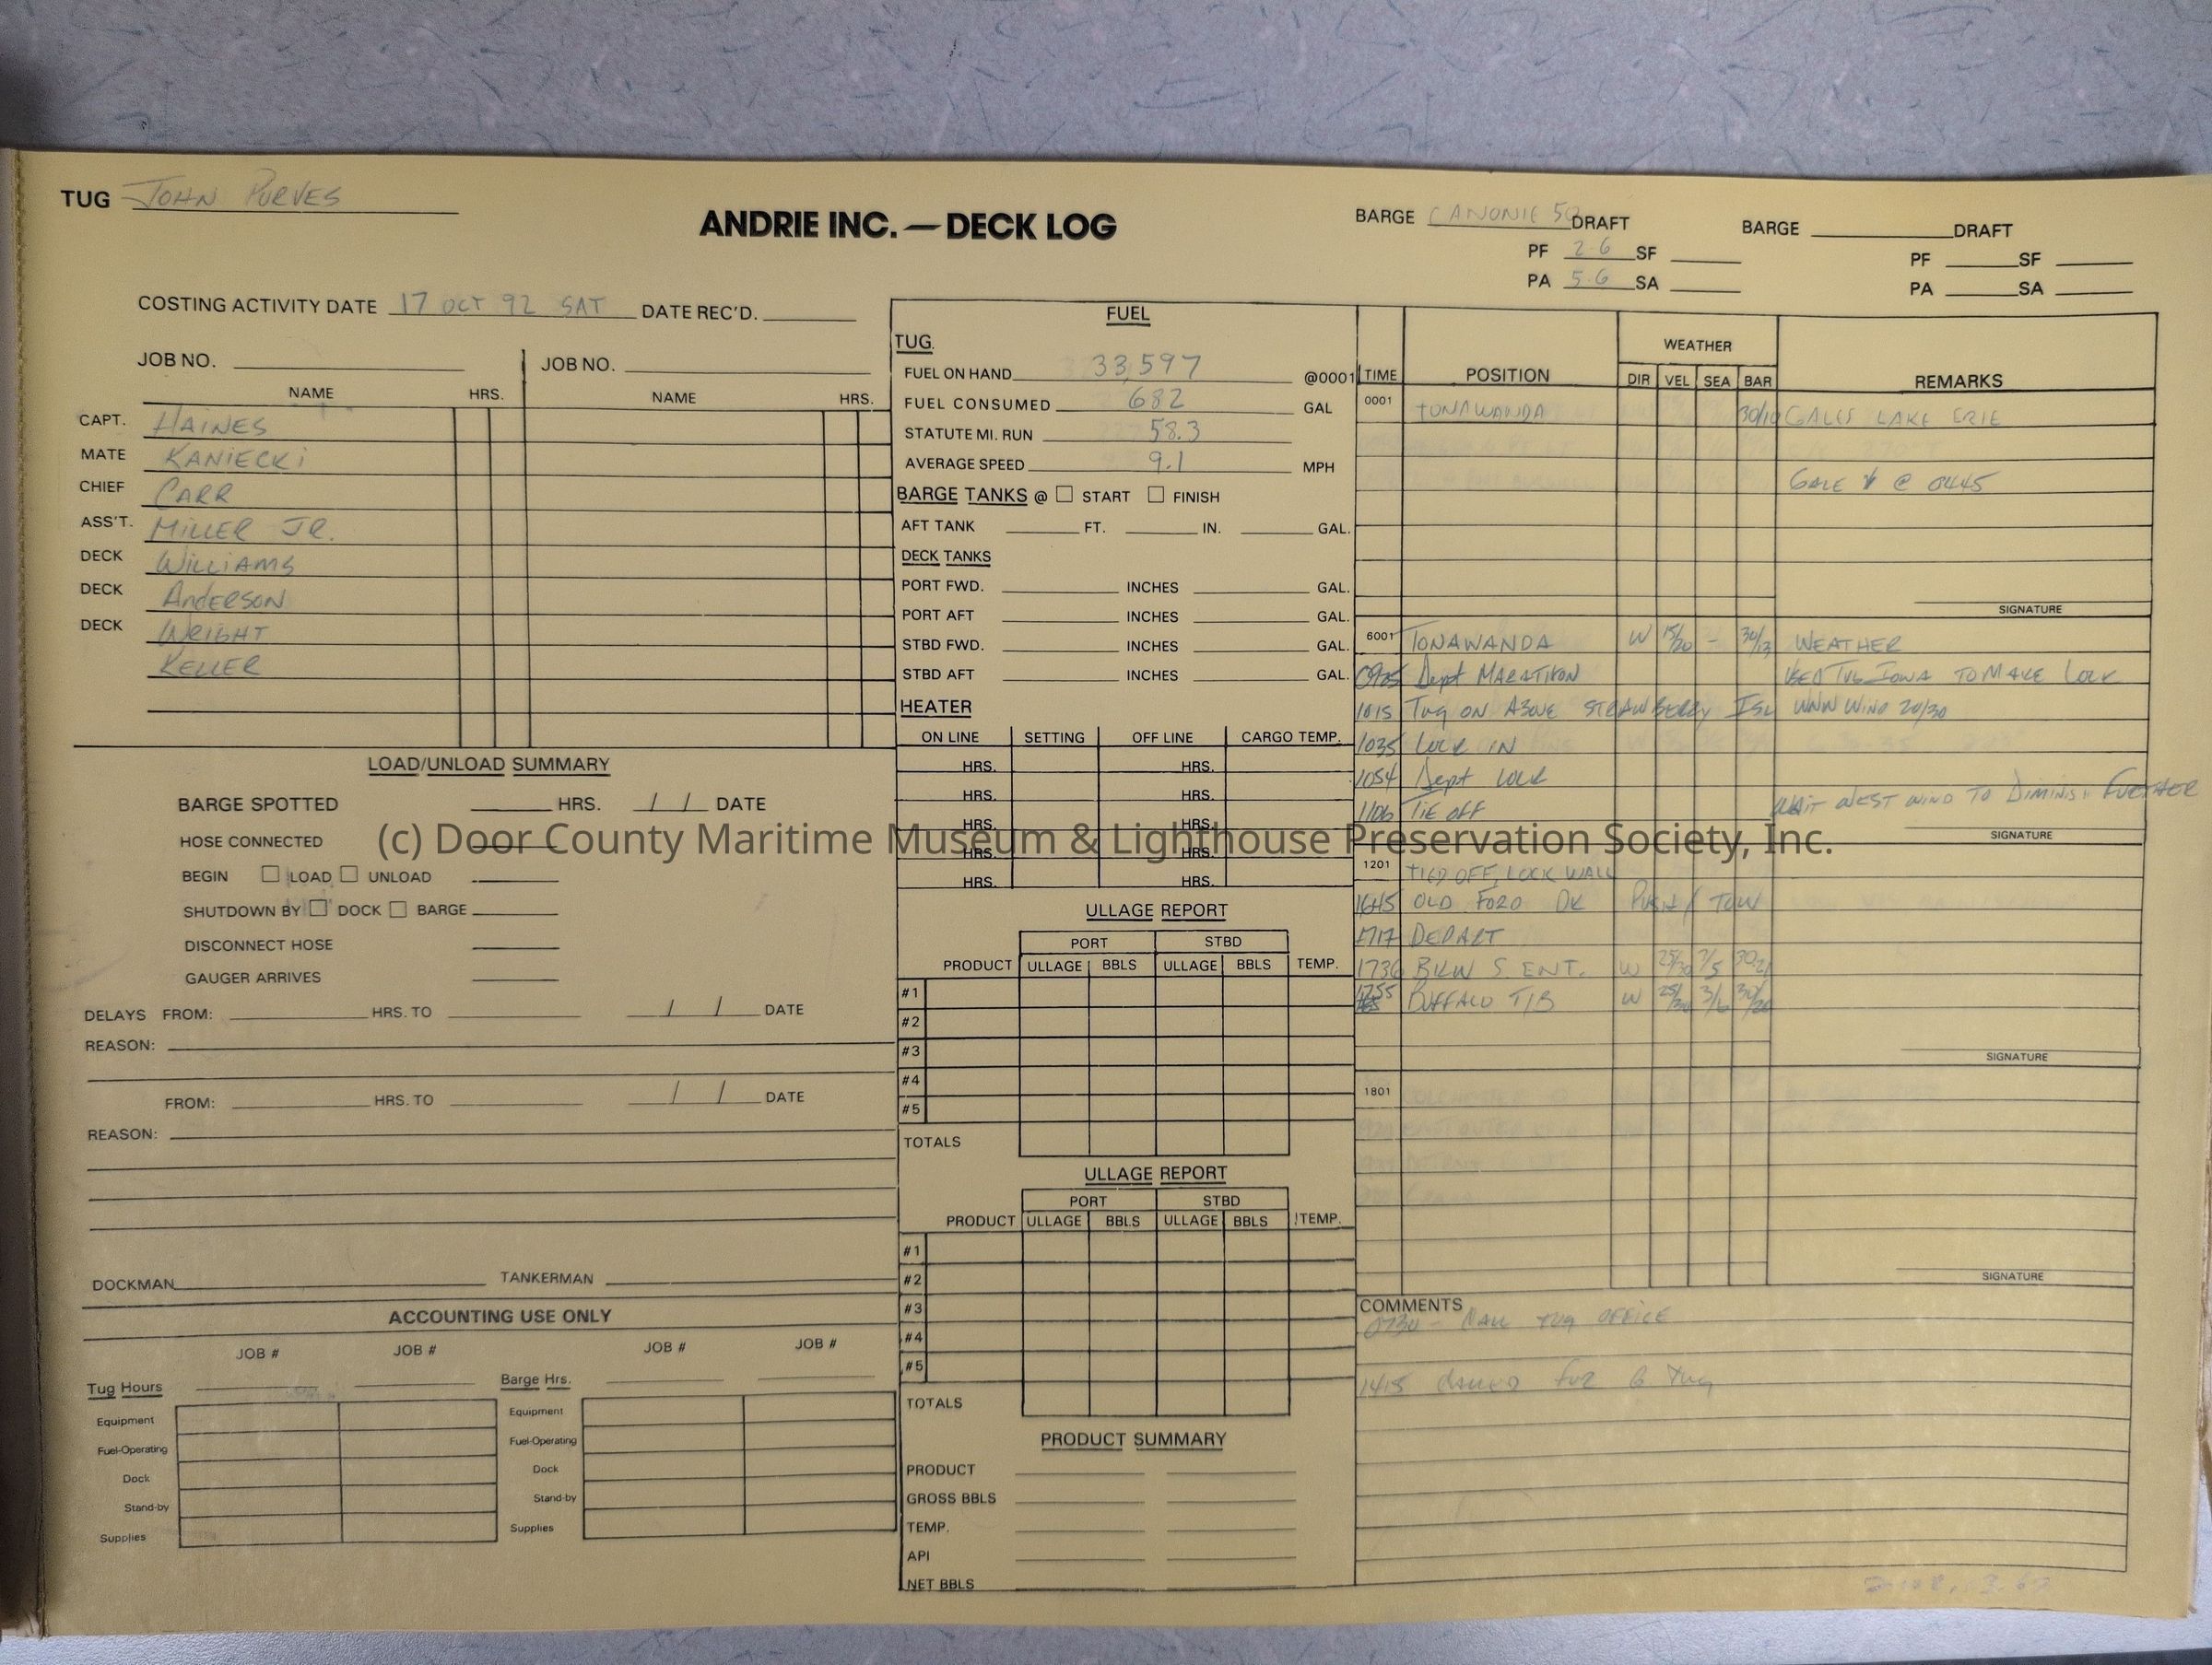 TUG JOHN PURVES
ANDRIE INC. — DECK LOG
BARGE CANONIE 50 DRAFT
PF 2-6 SF
PA 5-6 SA
BARGE DRAFT
PF SF
PA SA
COSTING ACTIVITY DATE 17 OCT 92 SAT DATE REC'D.
JOB NO. JOB NO.
NAME HRS. NAME HRS.
CAPT. HAINES
MATE KANIECKI
CHIEF CARR
ASS'T. MILLER JR.
DECK WILLIAMS
DECK ANDERSON
DECK WRIGHT
KELLER
LOAD/UNLOAD SUMMARY
BARGE SPOTTED HRS. / / DATE
HOSE CONNECTED
BEGIN LOAD UNLOAD
SHUTDOWN BY DOCK BARGE
DISCONNECT HOSE
GAUGER ARRIVES
DELAYS FROM: HRS. TO / / DATE
REASON:
FROM: HRS. TO / / DATE
REASON:
DOCKMAN TANKERMAN
ACCOUNTING USE ONLY
JOB # JOB # JOB # JOB #
Tug Hours Barge Hrs.
Equipment Equipment
Fuel-Operating Fuel-Operating
Dock Dock
Stand-by Stand-by
Supplies Supplies
FUEL
TUG.
FUEL ON HAND 33,597 @0001
FUEL CONSUMED 682 GAL
STATUTE MI. RUN 58.3
AVERAGE SPEED 9.1 MPH
BARGE TANKS @ START FINISH
AFT TANK FT. IN. GAL.
DECK TANKS
PORT FWD. INCHES GAL.
PORT AFT INCHES GAL.
STBD FWD. INCHES GAL.
STBD AFT INCHES GAL.
HEATER
ON LINE SETTING OFF LINE CARGO TEMP.
HRS. HRS.
HRS. HRS.
HRS. HRS.
HRS. HRS.
HRS. HRS.
ULLAGE REPORT
PORT STBD
PRODUCT ULLAGE BBLS ULLAGE BBLS TEMP.
#1
#2
#3
#4
#5
TOTALS
ULLAGE REPORT
PORT STBD
PRODUCT ULLAGE BBLS ULLAGE BBLS TEMP.
#1
#2
#3
#4
#5
TOTALS
PRODUCT SUMMARY
PRODUCT
GROSS BBLS
TEMP.
API
NET BBLS
WEATHER
TIME POSITION DIR VEL SEA BAR REMARKS
0001 TONAWANDA 30/10 GALES LAKE ERIE
GALE @ 0445
SIGNATURE
6001 TONAWANDA W 15/20 - 30/13 WEATHER
Dept MARATHON USED TUG IOWA TO MAKE LOCK
1015 Tug ON ABOVE STRAWBERRY ISL WNW WIND 20/30
1035 LOCK IN
1054 Dept LOCK
1106 TIE OFF WAIT WEST WIND TO DIMINISH FURTHER
SIGNATURE
1201 TIED OFF, LOCK WALL
1645 OLD FORD DK PUSH / TOW
1717 DEPART
1736 BKW S. ENT. W 25/30 30.21
1755 BUFFALO T/B W 25/30 3/6
SIGNATURE
1801
SIGNATURE
COMMENTS
0730 - CALL TUG OFFICE
1415 CALLED FOR G TUG
(c) Door County Maritime Museum & Lighthouse Preservation Society, Inc.